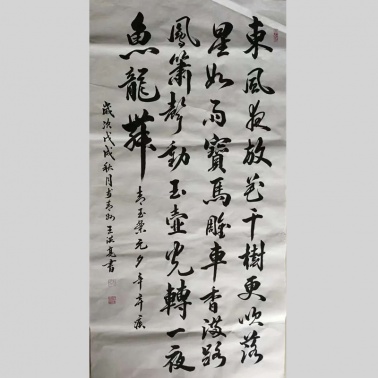 東風夜放花千樹更吹落
星如雨寶馬雕車香滿路
鳳簫聲動玉壺光轉一夜
魚龍舞
青玉案元夕辛弃疾
歲次戊戌秋月
王洪亮書